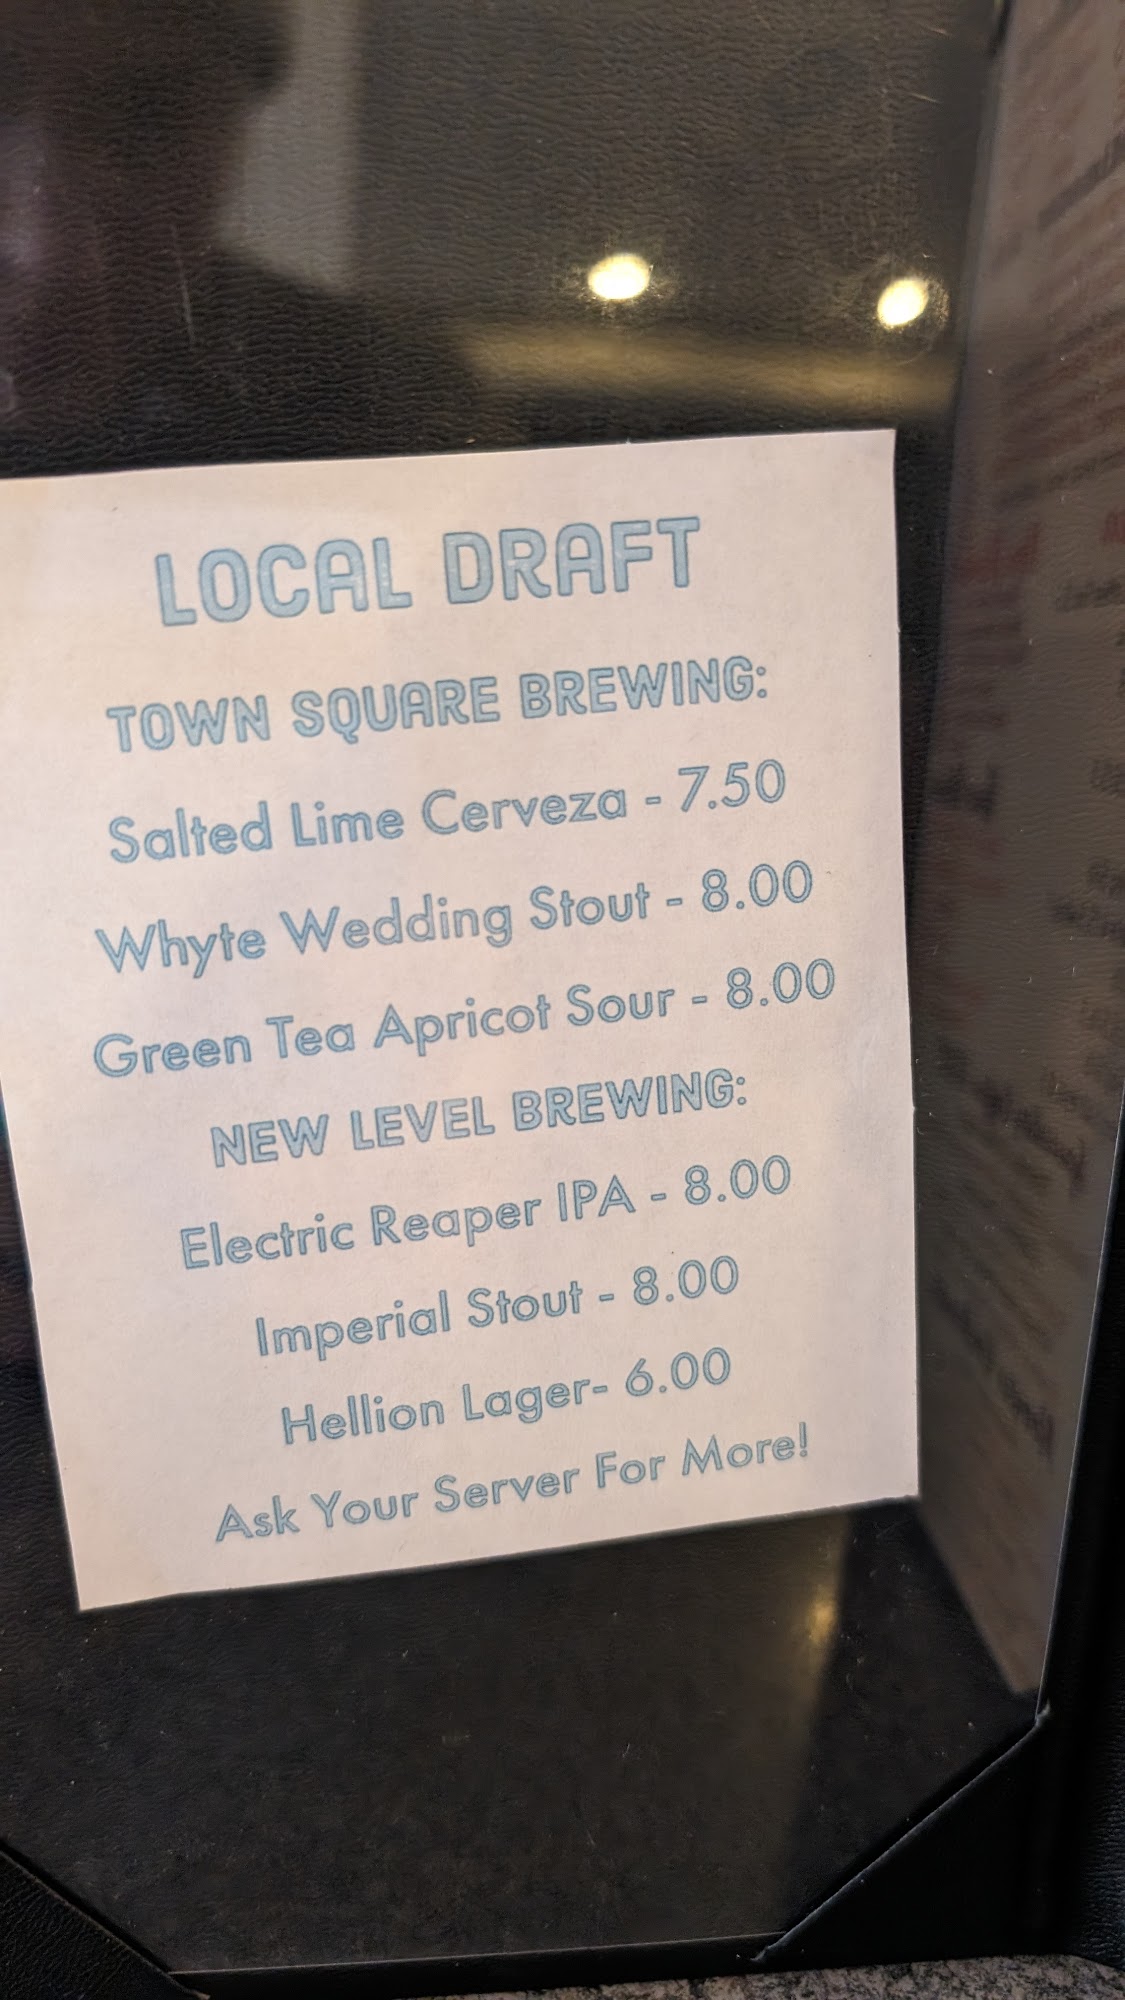 LOCAL DRAFT
TOWN SQUARE BREWING:
Salted Lime Cerveza - 7.50
Whyte Wedding Stout - 8.00
Green Tea Apricot Sour - 8.00
NEW LEVEL BREWING:
Electric Reaper IPA - 8.00
Imperial Stout - 8.00
Hellion Lager- 6.00
Ask Your Server For More!